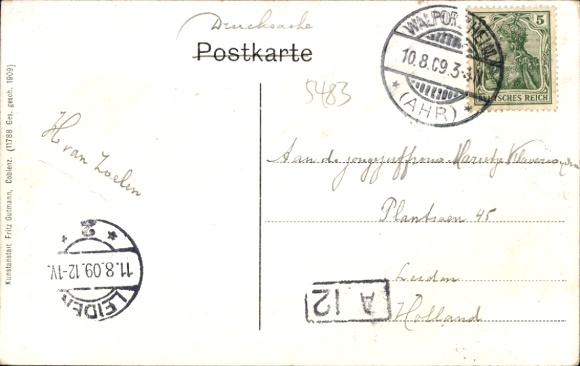 Drucksache
Postkarte
WALPORZHEIM
10.8.09.3-4N
* (AHR) *
5
DEUTSCHES REICH
5483
H van Zoelen
Aan de jongejuffrouw Marietje
Plantsoen 45
Leiden
Holland
A 12
LEIDEN
11.8.09.12-1V.
* 2 *
Kunstanstalt Fritz Gutmann, Coblenz. (11788 Ges. gesch. 1909)